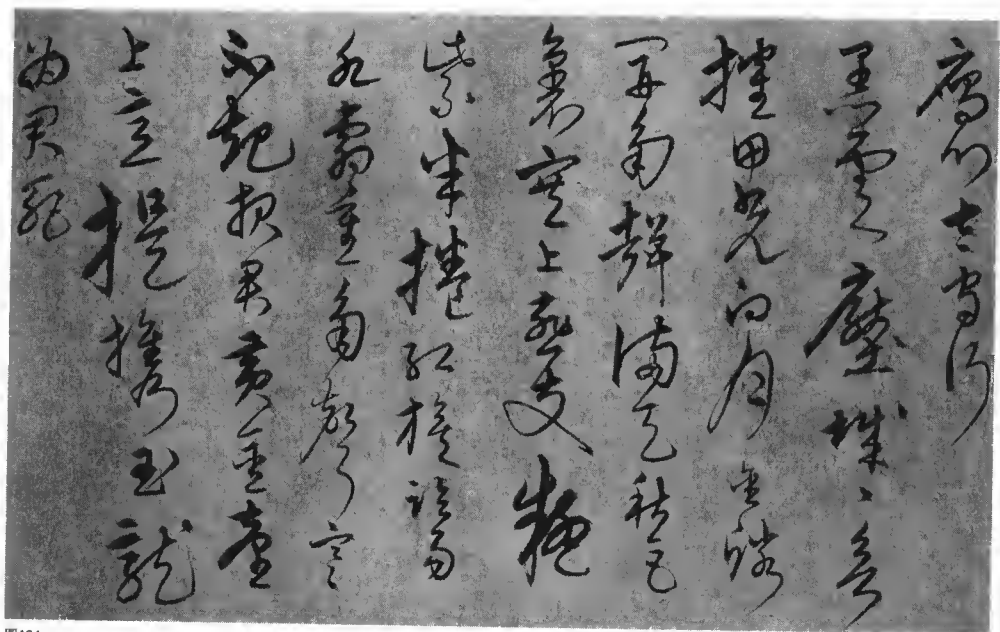 鴈門太守行
黑雲壓城〻欲
摧甲光向月金鱗
開角聲滿天秋色
裏塞上燕支
紫半捲紅旗臨易
水霜重角聲寒
不起報君黃金臺
上意提攜玉龍
為君死